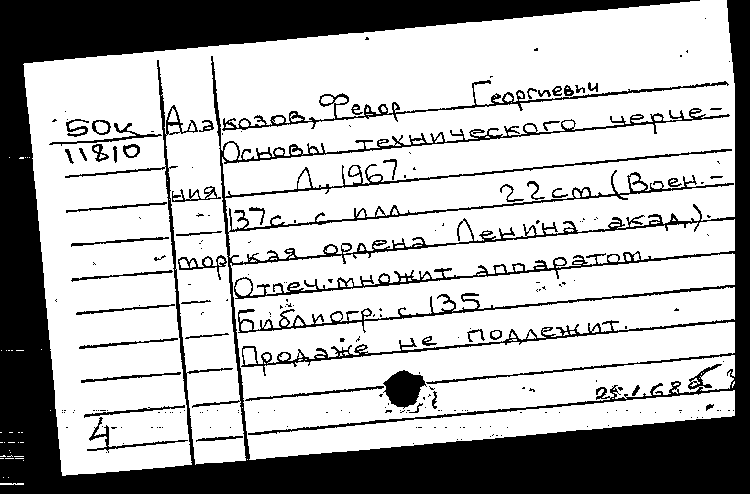 50к Алакозов, Федор Георгиевич
11810 Основы технического черче-
ния. Л., 1967.
137с. с илл. 22см. (Воен.-
морская ордена Ленина акад.).
Отпеч. множит. аппаратом.
Библиогр: с. 135.
Продаже не подлежит.
4